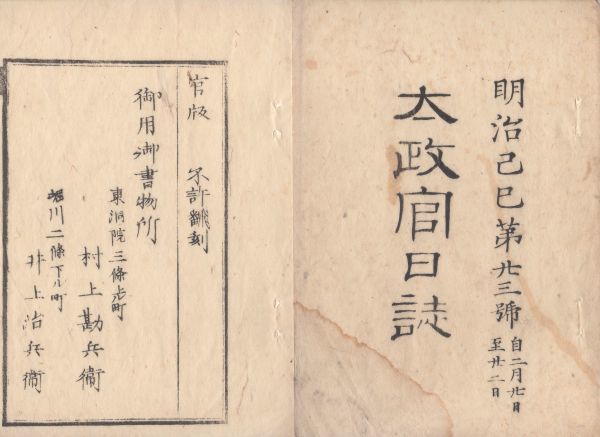 明治己巳第廿三號
自二月廿日
至廿二日
太政官日誌
官版 不許翻刻
御用御書物所
東洞院三條上町
村上勘兵衞
堀川二條下ル町
井上治兵衞